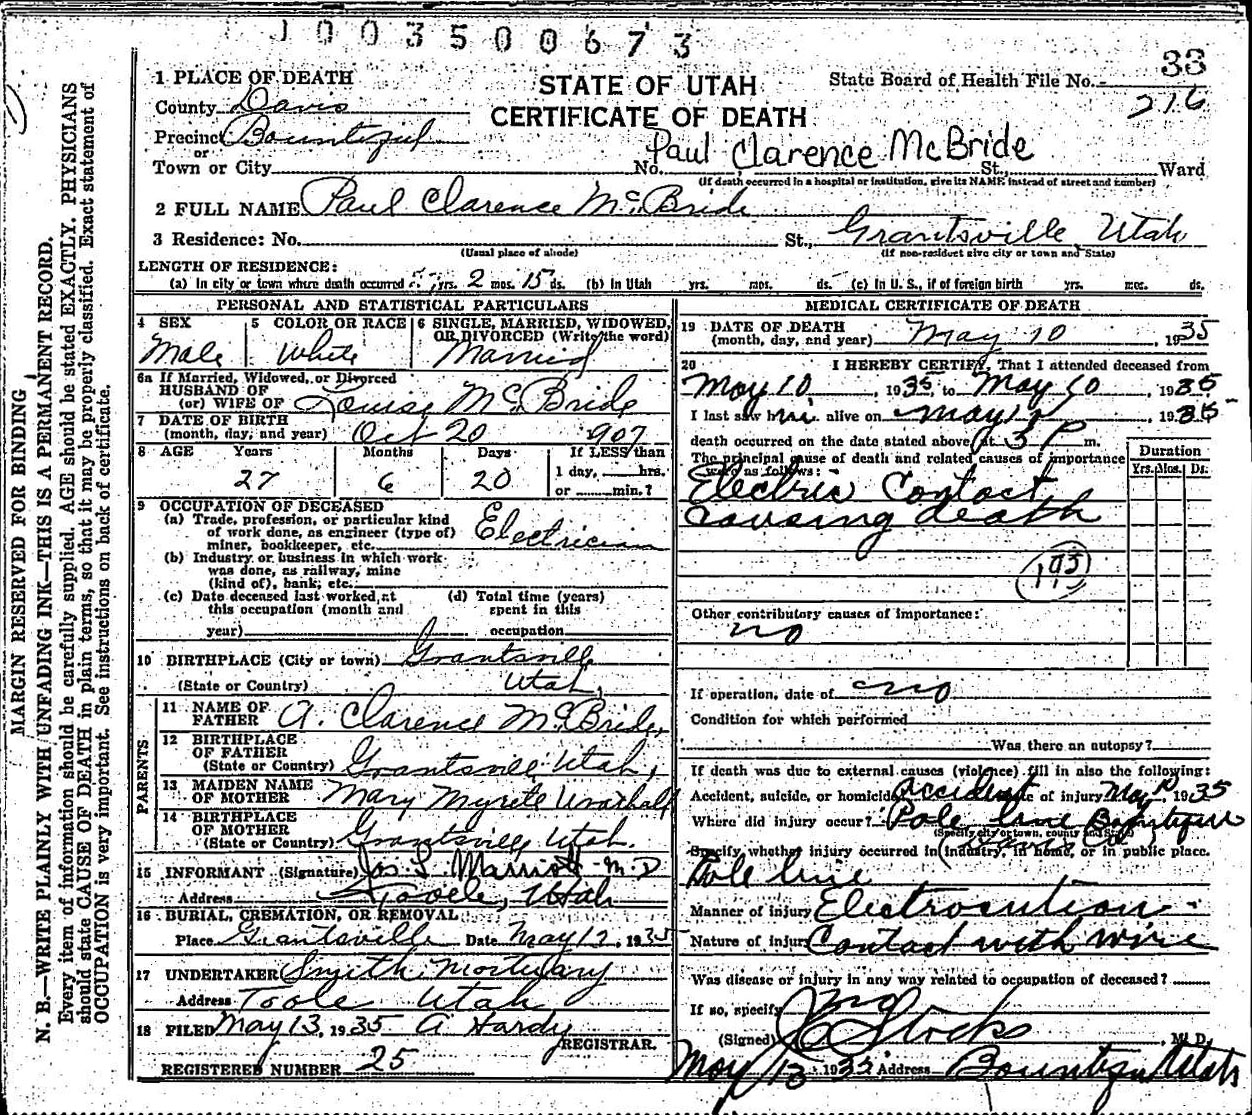 1003500673
33
1 PLACE OF DEATH
STATE OF UTAH
State Board of Health File No.-
216
County Davis
CERTIFICATE OF DEATH
Precinct Bountiful
or
Paul Clarence McBride
Town or City No. St., Ward
(If death occurred in a hospital or institution, give its NAME instead of street and number)
2 FULL NAME Paul Clarence McBride
3 Residence: No. St., Grantsville Utah
(Usual place of abode) (If non-resident give city or town and State)
LENGTH OF RESIDENCE:
(a) In city or town where death occurred yrs. 2 mos. 15 ds. (b) In Utah yrs. mos. ds. (c) In U. S., if of foreign birth yrs. mos. ds.
PERSONAL AND STATISTICAL PARTICULARS
4 SEX
Male
5 COLOR OR RACE
White
6 SINGLE, MARRIED, WIDOWED,
OR DIVORCED (Write the word)
Married
6a If Married, Widowed, or Divorced
HUSBAND OF
(or) WIFE OF Louise McBride
7 DATE OF BIRTH
(month, day, and year) Oct 20 1907
8 AGE Years Months Days If LESS than
1 day, hrs.
27 6 20
or min.?
9 OCCUPATION OF DECEASED
(a) Trade, profession, or particular kind
of work done, as engineer (type of)
miner, bookkeeper, etc. Electrician
(b) Industry or business in which work
was done, as railway, mine
(kind of), bank, etc.
(c) Date deceased last worked at
this occupation (month and
year)
(d) Total time (years)
spent in this
occupation
10 BIRTHPLACE (City or town) Grantsville
(State or Country) Utah,
PARENTS
11 NAME OF
FATHER A. Clarence McBride,
12 BIRTHPLACE
OF FATHER
(State or Country) Grantsville Utah,
13 MAIDEN NAME
OF MOTHER Mary Myrtle Wrathall
14 BIRTHPLACE
OF MOTHER
(State or Country) Grantsville Utah.
15 INFORMANT (Signature) Jos. L. Marriott M.D
Address Tooele, Utah
16 BURIAL, CREMATION, OR REMOVAL
Place Grantsville Date May 12, 1935
17 UNDERTAKER Smith Mortuary
Address Tooele Utah
18 FILED May 13, 1935 A Hardy
REGISTRAR.
REGISTERED NUMBER 25
MEDICAL CERTIFICATE OF DEATH
19 DATE OF DEATH
(month, day, and year) May 10, 1935
20 I HEREBY CERTIFY, That I attended deceased from
May 10, 1935, to May 10, 1935
I last saw him alive on May 10, 1935
death occurred on the date stated above, at 3 P m.
The principal cause of death and related causes of importance
were as follows:
Duration
Yrs. Mos. Ds.
Electric Contact
causing death
193
Other contributory causes of importance:
no
If operation, date of no
Condition for which performed
Was there an autopsy?
If death was due to external causes (violence) fill in also the following:
Accident, suicide, or homicide Accident Date of injury May 10 1935
Where did injury occur? Pole line Bountiful
(Specify city or town, county and State)
Davis Co.
Specify whether injury occurred in industry, in home, or in public place.
Pole line
Manner of injury Electrocution
Nature of injury Contact with wire
Was disease or injury in any way related to occupation of deceased?
If so, specify no
(Signed) Stocks, M. D.
May 13, 1935 Address Bountiful Utah
MARGIN RESERVED FOR BINDING
N. B.—WRITE PLAINLY WITH UNFADING INK—THIS IS A PERMANENT RECORD.
Every item of information should be carefully supplied. AGE should be stated EXACTLY. PHYSICIANS
should state CAUSE OF DEATH in plain terms, so that it may be properly classified. Exact statement of
OCCUPATION is very important. See instructions on back of certificate.